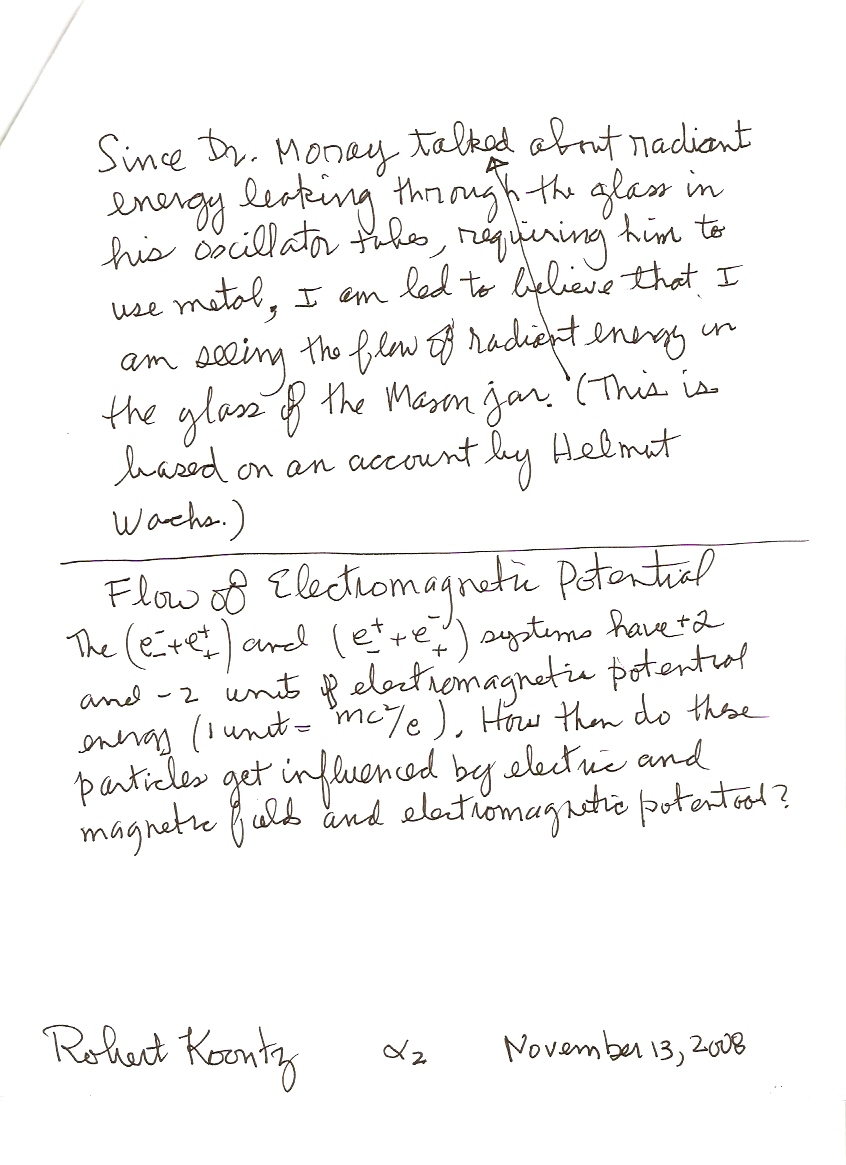 Since Dr. Moray talked about radiant
energy leaking through the glass in
his oscillator tubes, requiring him to
use metal, I am led to believe that I
am seeing the flow of radiant energy in
the glass of the Mason jar. (This is
based on an account by Helmut
Wachs.)
Flow of Electromagnetic Potential
The (e⁻₋+e⁺₊) and (e⁺₋+e⁻₊) systems have +2
and -2 units of electromagnetic potential
energy (1 unit = mc²/e). How then do these
particles get influenced by electric and
magnetic fields and electromagnetic potential?
Robert Koontz α2 November 13, 2008